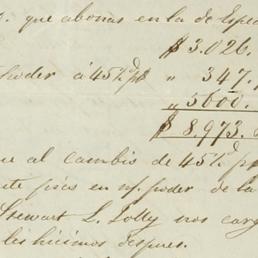 que abonas en la de
$ 3.026.
poder á 45½ d p$ " 347.
" 5600.
$ 8.973.
al cambio de 45½ d p$
en n/ poder de la
Stewart L. Jolly nos
hicimos despues.